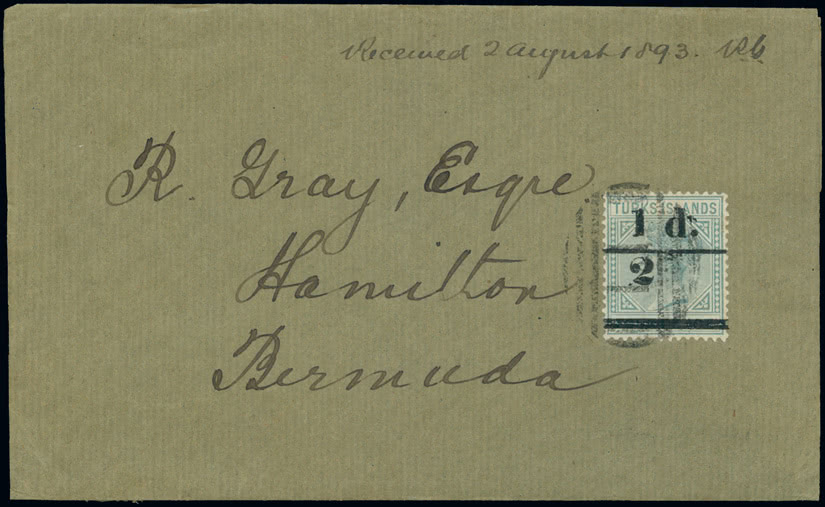 Received 2 August 1893. Rb
R. Gray, Esqre
Hamilton
Bermuda
TURKS ISLANDS
1 d.
2